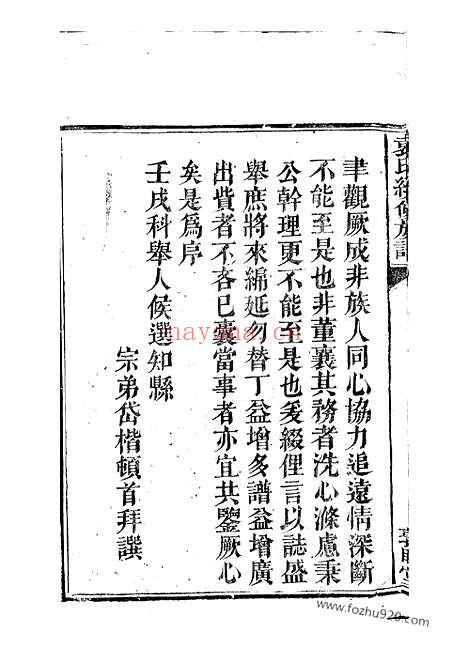 聿觀厥成非族人同心協力追遠情深斷
不能至是也非董襄其務者洗心滌慮秉
公幹理更不能至是也爰綴俚言以誌盛
舉庶將來綿延勿替丁益增多譜益增廣
出貲者不吝已囊當事者亦宜共鑒厥心
矣是爲序
壬戌科舉人候選知縣
宗弟岱楷頓首拜譔
袁氏續修族譜
nayona.cn
www.fozhu920.com